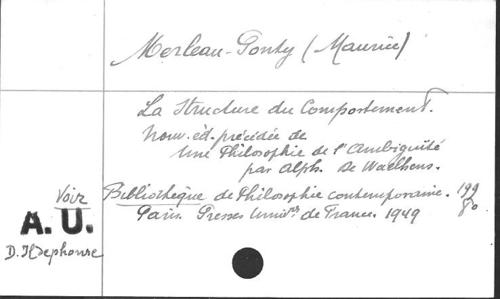 Merleau-Ponty (Maurice)
La Structure du Comportement.
Nouv. éd. précédée de
Une Philosophie de l'Ambiguïté
par Alph. De Waelhens.
Voir Bibliothèque de Philosophie contemporaine. 199
A.U. Paris. Presses Univrs de France. 1949 80
D. Ildephonse